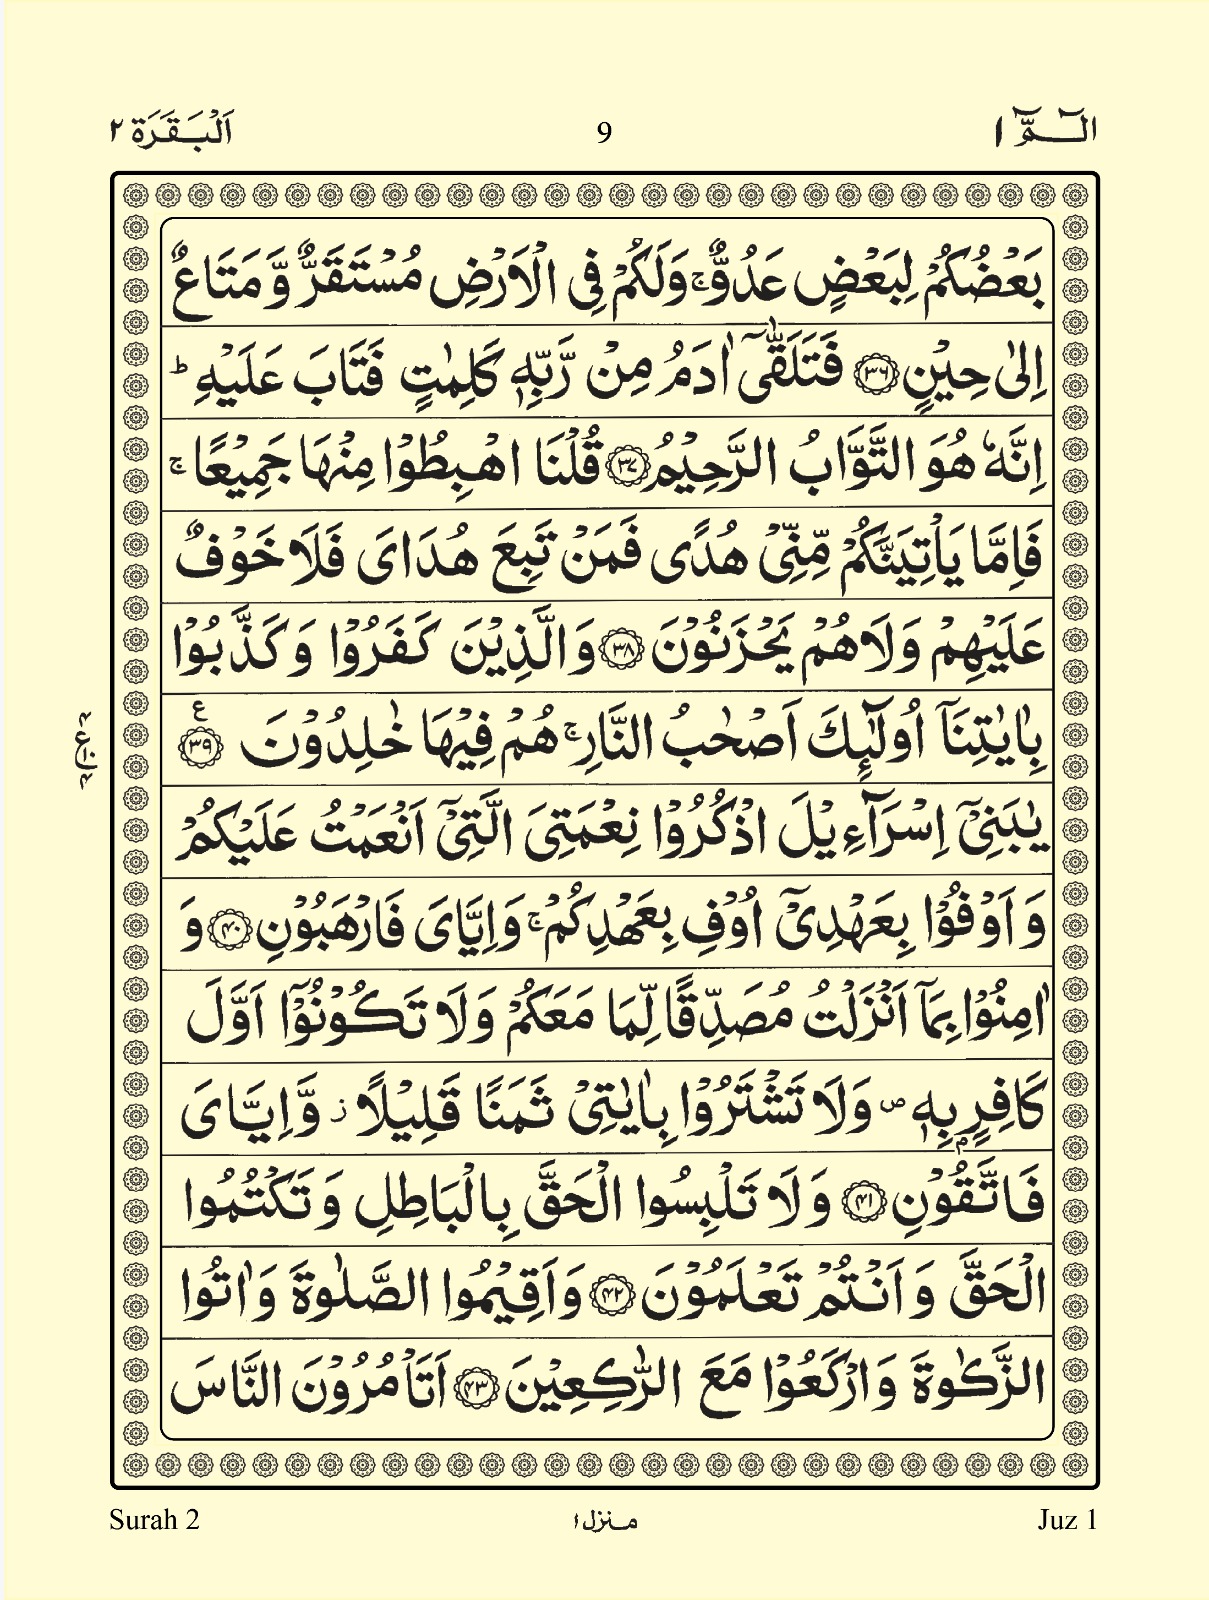 الٓـمّٓ ١
9
اَلْبَقَرَة ٢
بَعْضُكُمْ لِبَعْضٍ عَدُوٌّ ۚ وَلَكُمْ فِى الْاَرْضِ مُسْتَقَرٌّ وَّمَتَاعٌ
اِلٰى حِيْنٍ ﴿۳۶﴾ فَتَلَقّٰٓى اٰدَمُ مِنْ رَّبِّهٖ كَلِمٰتٍ فَتَابَ عَلَيْهِ ؕ
اِنَّهٗ هُوَ التَّوَّابُ الرَّحِيْمُ ﴿۳۷﴾ قُلْنَا اهْبِطُوْا مِنْهَا جَمِيْعًا ۚ
فَاِمَّا يَاْتِيَنَّكُمْ مِّنِّىْ هُدًى فَمَنْ تَبِعَ هُدَاىَ فَلَا خَوْفٌ
عَلَيْهِمْ وَلَا هُمْ يَحْزَنُوْنَ ﴿۳۸﴾ وَالَّذِيْنَ كَفَرُوْا وَكَذَّبُوْا
بِاٰيٰتِنَآ اُولٰٓئِكَ اَصْحٰبُ النَّارِ ۚ هُمْ فِيْهَا خٰلِدُوْنَ ﴿۳۹﴾ ع
يٰبَنِىْٓ اِسْرَآءِيْلَ اذْكُرُوْا نِعْمَتِىَ الَّتِىْٓ اَنْعَمْتُ عَلَيْكُمْ
وَاَوْفُوْا بِعَهْدِىْٓ اُوْفِ بِعَهْدِكُمْ ۚ وَاِيَّاىَ فَارْهَبُوْنِ ﴿۴۰﴾ وَ
اٰمِنُوْا بِمَآ اَنْزَلْتُ مُصَدِّقًا لِّمَا مَعَكُمْ وَلَا تَكُوْنُوْٓا اَوَّلَ
كَافِرٍۭ بِهٖ ۪ وَلَا تَشْتَرُوْا بِاٰيٰتِىْ ثَمَنًا قَلِيْلًا ز وَّاِيَّاىَ
فَاتَّقُوْنِ ﴿۴۱﴾ وَلَا تَلْبِسُوا الْحَقَّ بِالْبَاطِلِ وَتَكْتُمُوا
الْحَقَّ وَاَنْتُمْ تَعْلَمُوْنَ ﴿۴۲﴾ وَاَقِيْمُوا الصَّلٰوةَ وَاٰتُوا
الزَّكٰوةَ وَارْكَعُوْا مَعَ الرّٰكِعِيْنَ ﴿۴۳﴾ اَتَاْمُرُوْنَ النَّاسَ
Surah 2
منزل ١
Juz 1